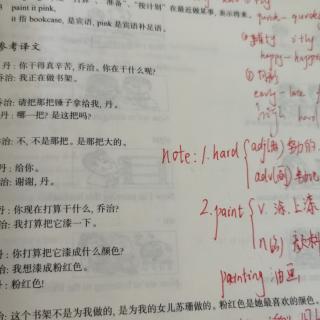 "按计划"在最近做某事,表示将来。
paint it pink.
it 指 bookcase, 是宾语, pink 是宾语补足语。
参考译文
丹:你干得真辛苦,乔治。你在干什么呢?
乔治:我正在做书架。
乔治:请把那把锤子拿给我,丹。
丹:哪一把?是这把吗?
乔治:不,不是那把。是那把大的。
丹:给你。
乔治:谢谢,丹。
丹:你现在打算干什么,乔治?
乔治:我打算把它漆一下。
丹:你打算把它漆成什么颜色?
乔治:我想漆成粉红色。
丹:粉红色!
治:这个书架不是为我做的,是为我的女儿苏珊做的。粉红色是她最喜欢的颜色。
early - late
note: 1. hard
2. paint
v. 漆.上漆
painting 油画